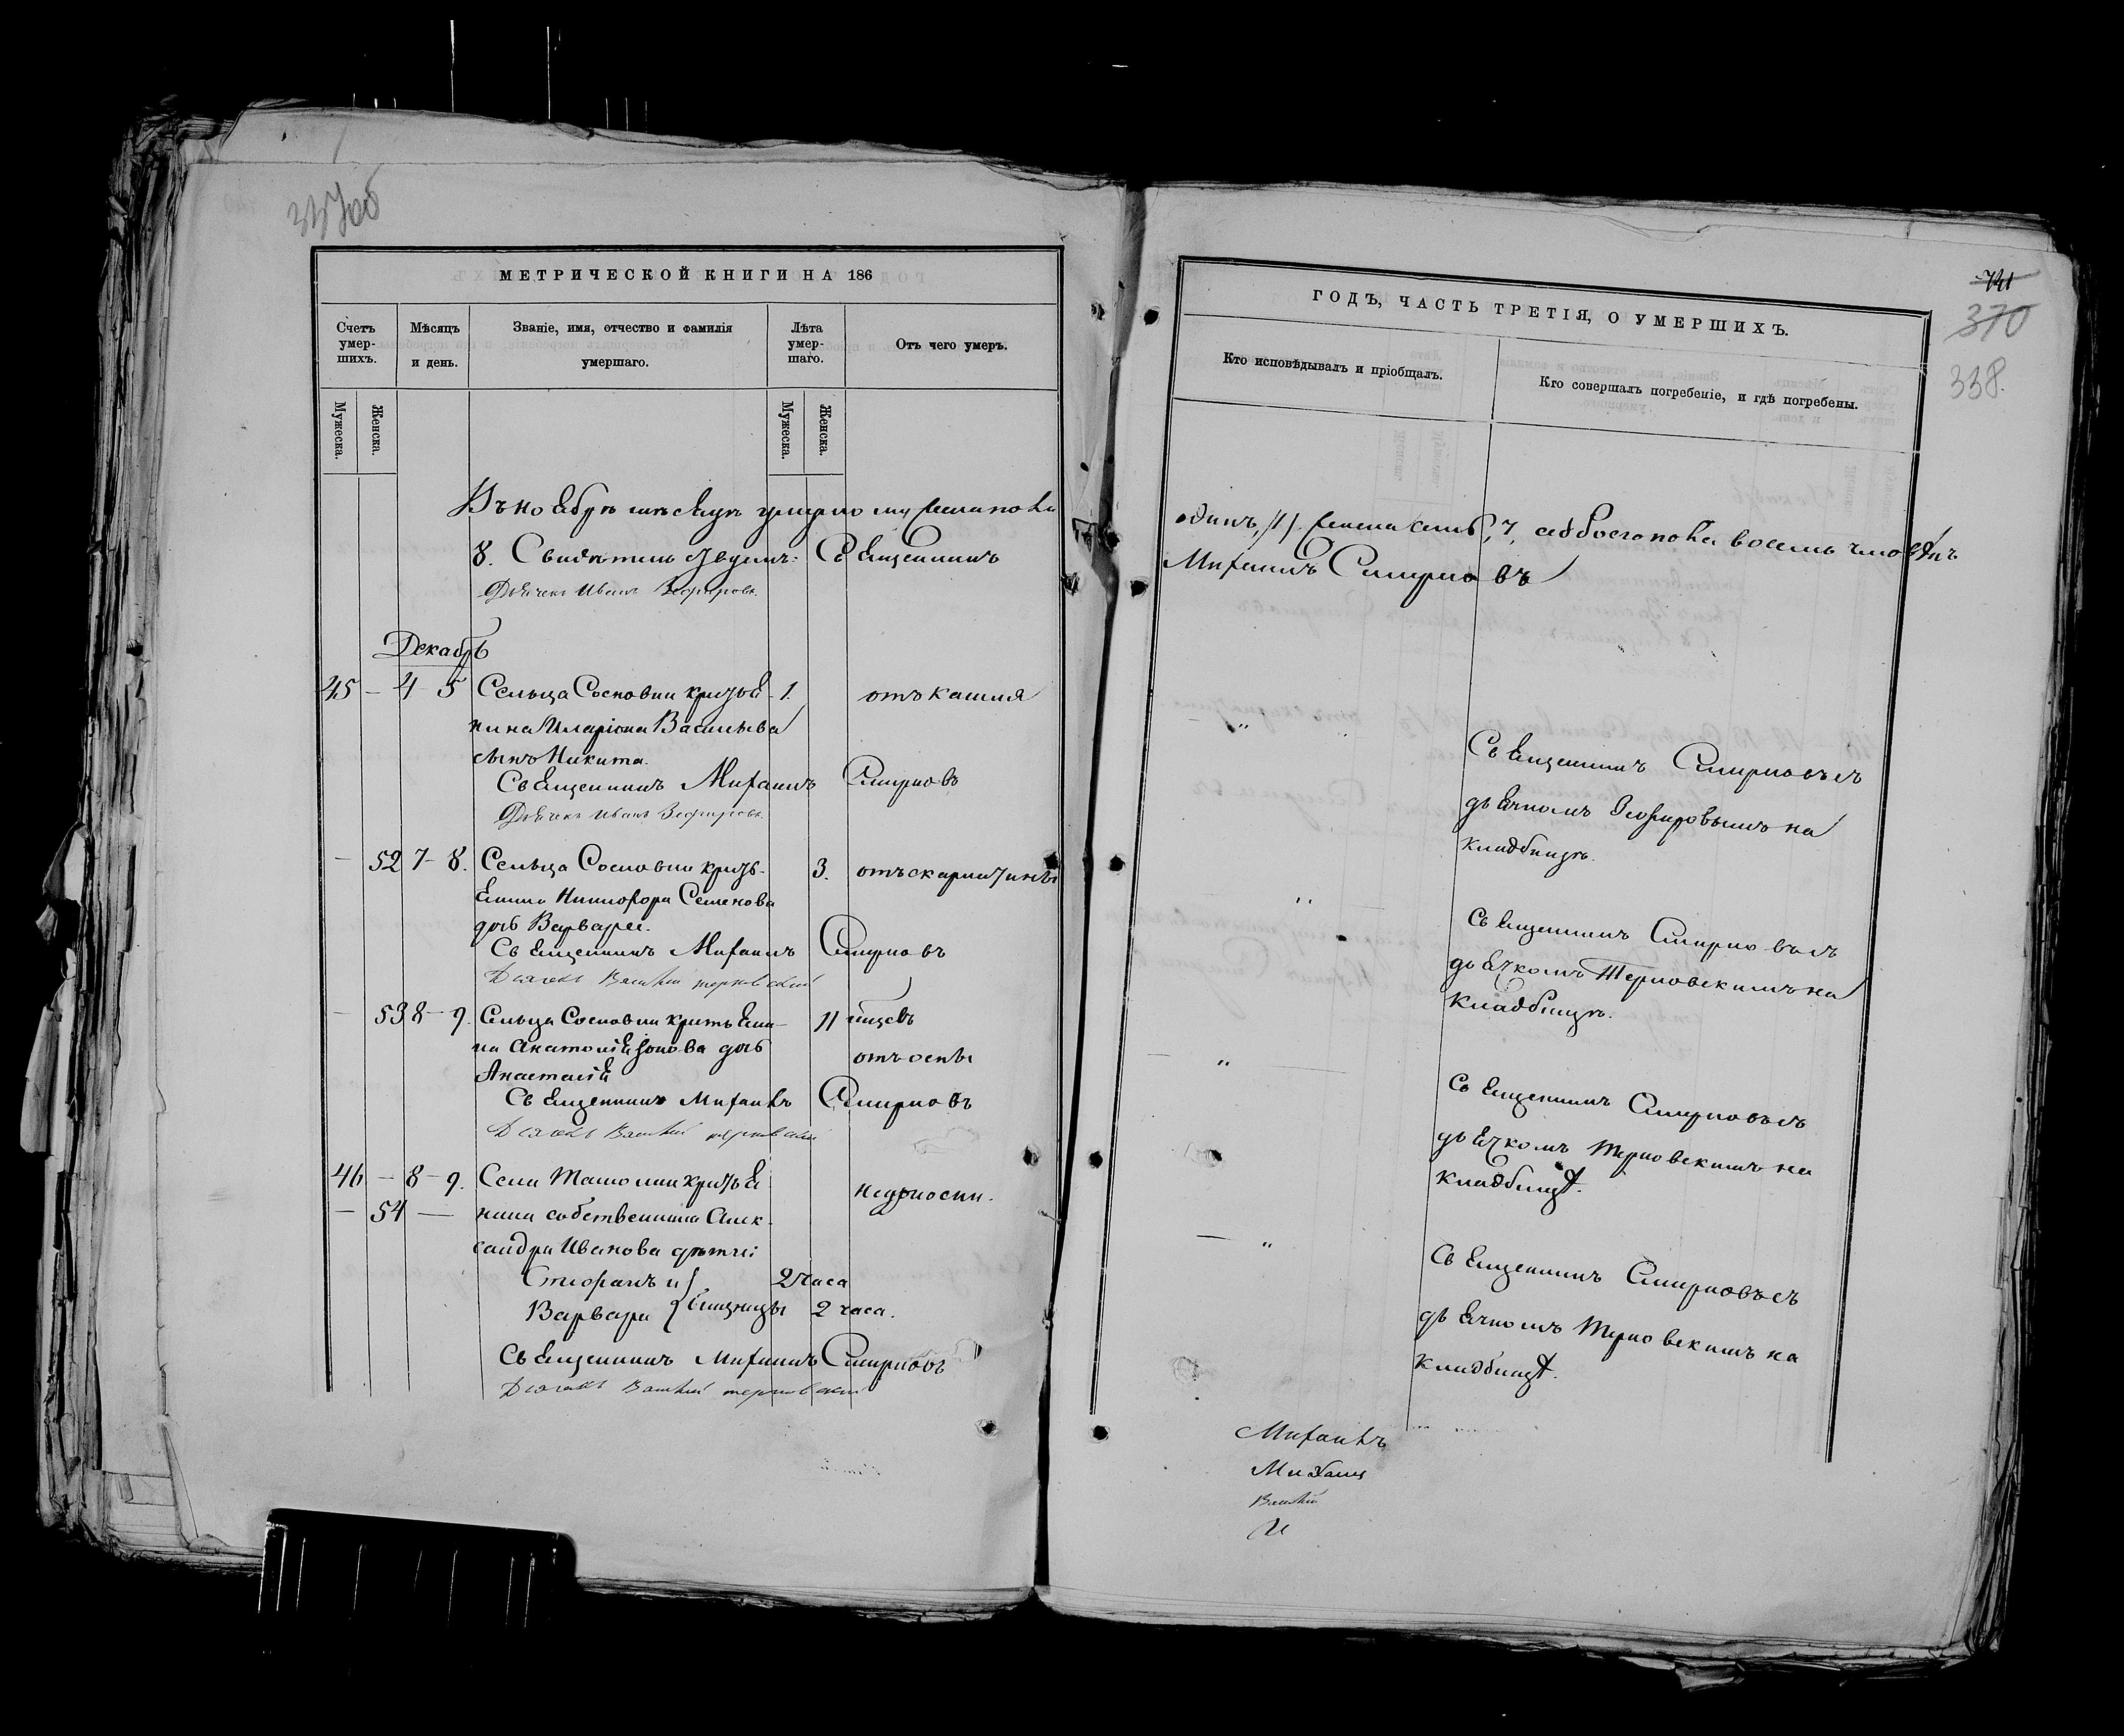 МЕТРИЧЕСКОЙ КНИГИ НА 186
Счетъ умер-шихъ.
Мѣсяцъ и день.
Званіе, имя, отчество и фамилія умершаго.
Лѣта умер-шаго.
Отъ чего умеръ.
Мужеска.
Женска.
Мужеска.
Женска.
Въ Ноябрѣ мѣсяцѣ умерло мужеска пола
8. Свидѣтельствуемъ: Священникъ
Дьячекъ Иванъ Зефировъ.
Декабрь
45 – 4 5 Сельца Сосновки крестья- 1. отъ кашля
нина Иларіона Васильева
сынъ Никита.
Священникъ Михаилъ Смирновъ
Дьячекъ Иванъ Зефировъ.
– 52 7– 8. Сельца Сосновки кресть- 3. отъ скарлатины
янина Никифора Семенова
дочь Варвара.
Священникъ Михаилъ Смирновъ
Дьячекъ Василій Терновскій
– 53 8– 9. Сельца Сосновки крестьяни- 11 мѣсяцевъ
на Анатолія дочь отъ оспы
Анастасія
Священникъ Михаилъ Смирновъ
Дьячекъ Василій Терновскій
46 – 8– 9. Села крестья
– 54 — нина собственника Алек- недоноски.
сандра Иванова дѣти:
Стефанъ и 2 часа
Варвара } близнецы 2 часа.
Священникъ Михаилъ Смирновъ
Дьячекъ Василій Терновскій
741
370
338.
ГОДЪ, ЧАСТЬ ТРЕТІЯ, О УМЕРШИХЪ.
Кто исповѣдывалъ и пріобщалъ.
Кто совершалъ погребеніе, и гдѣ погребены.
одинъ, /1/ женска семь, 7, обоего пола восемь человѣкъ
Михаилъ Смирновъ
Священникъ Смирновъ съ
дьячкомъ Зефировымъ на
кладбищѣ.
Священникъ Смирновъ съ
дьячкомъ Терновскимъ на
кладбищѣ.
Священникъ Смирновъ съ
дьячкомъ Терновскимъ на
кладбищѣ.
Священникъ Смирновъ съ
дьячкомъ Терновскимъ на
кладбищѣ.
Михаилъ
Михаил
Василій
И